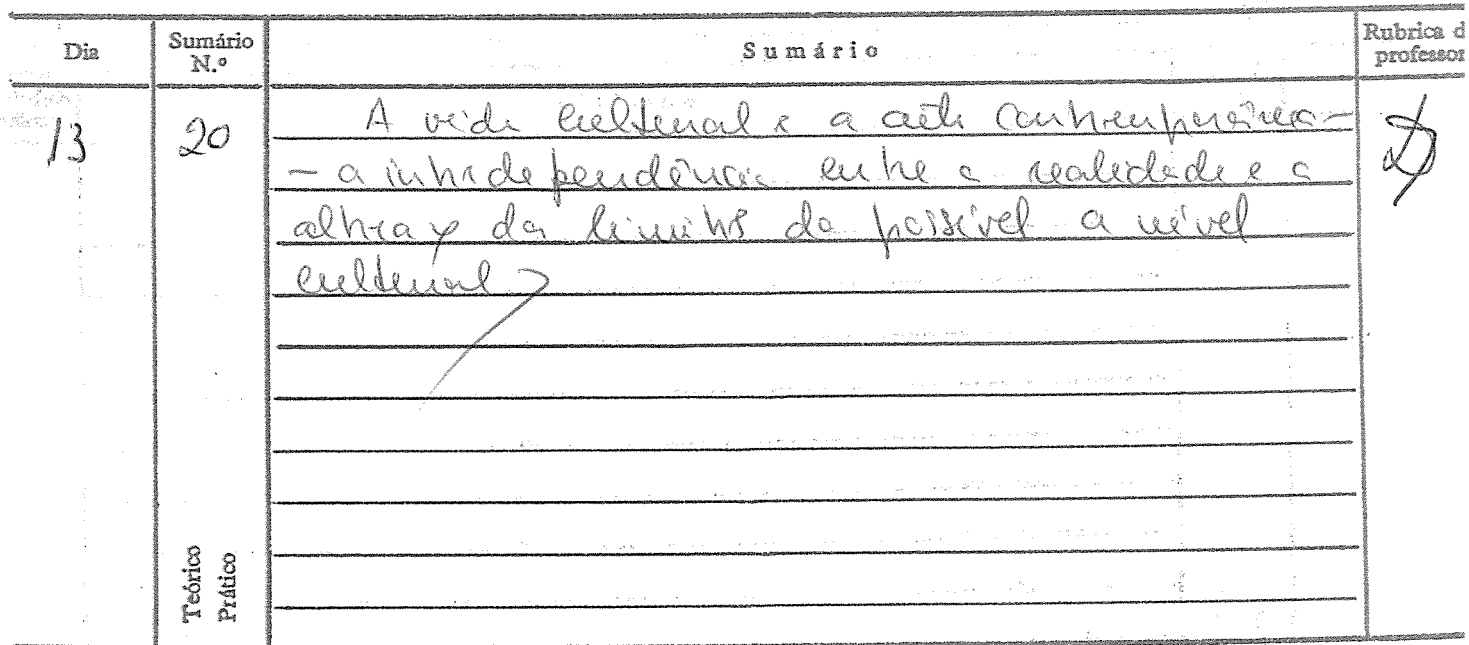 Dia
Sumário N.º
Sumário
Rubrica d
professor
13
20
A vida cultural e a arte contemporânea —
— a interdependência entre a realidade e a
alteração dos limites do possível a nível
cultural
Teórico
Prático